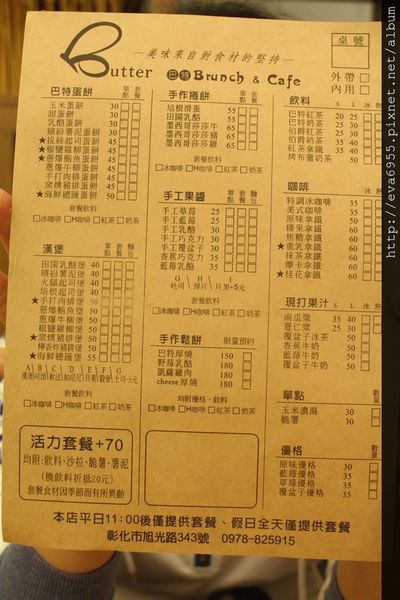 美味來自對食材的堅持
Butter 巴特 Brunch & Cafe
桌號
外帶
內用
巴特蛋餅 單點 套餐
玉米蛋餅 30
甜蛋餅 30
乳酪蛋餅 30
繽紛薯泥蛋餅 30
★拔絲起司蛋餅 45
★椒鹽雞柳蛋餅 45
★蔥爆鮪魚蛋餅 45
蔥爆牛柳蛋餅 45
手打肉排蛋餅 45
窯燻豬排蛋餅 45
★海鮮總匯蛋餅 50
套餐飲料
□冰咖啡 □H咖啡 □紅茶 □奶茶
漢堡 單點 套餐 麵包
田園乳酪堡 40
繽紛薯泥堡 40
火腿起司堡 40
培根起司堡 40
★手打肉排堡 50
蔥爆鮪魚堡 50
蔥爆牛柳堡 50
椒鹽雞柳堡 50
★窯燻豬排堡 50
檸香炸豬排堡 50
★海鮮總匯堡 50
A B C D E F G
套餐飲料
□冰咖啡 □H咖啡 □紅茶 □奶茶
活力套餐+70
均附:飲料、沙拉、脆薯、薯泥
(換飲料折抵20元)
套餐食材因季節而有所異動
手作捲餅 單點 套餐
培根滑蛋 55
田園乳酪 55
墨西哥莎莎牛 65
墨西哥莎莎豬 65
墨西哥莎莎雞 65
套餐飲料
□冰咖啡 □H咖啡 □紅茶 □奶茶
手工果醬 單點 套餐 麵包
手工草莓 25
手工藍莓 25
手工乳酪 30
手工巧克力 30
手工覆盆子 30
香蕉巧克力 35
藍莓乳酪 35
G H I
吐司/厚片/貝果+5元
套餐飲料
□冰咖啡 □H咖啡 □紅茶 □奶茶
手作鬆餅 限量預約
巴特厚燒 150
野莓乳酪 180
凱薩雞肉 180
cheese厚燒 180
均附優格、飲料
□冰咖啡 □H咖啡 □紅茶 □奶茶
飲料 S L 冰 熱
巴特紅茶 20 25
巴特奶茶 25 30
伯爵紅茶 25 30
伯爵奶茶 35 40
莊園紅茶 30 35
烤布蕾奶茶 35
咖啡 冰 熱
特調冰咖啡 35
美式咖啡 35
原味拿鐵 50
臻果拿鐵 60
焦糖拿鐵 60
★重乳拿鐵 65
抹茶拿鐵 60
學卡拿鐵 65
★桂花拿鐵 65
現打果汁 S L 冰 熱
南瓜漿 35 40
薏仁漿 25 30
覆盆子冰茶 50
香蕉牛奶 50
藍莓牛奶 50
覆盆子牛奶 50
單點 數量
玉米濃湯 30
脆薯 30
優格 數量
原味優格 30
藍莓優格 35
草莓優格 35
覆盆子優格 35
本店平日11:00後僅提供套餐、假日全天僅提供套餐
彰化市旭光路343號 0978-825915
http://eva6955.pixnet.net/album